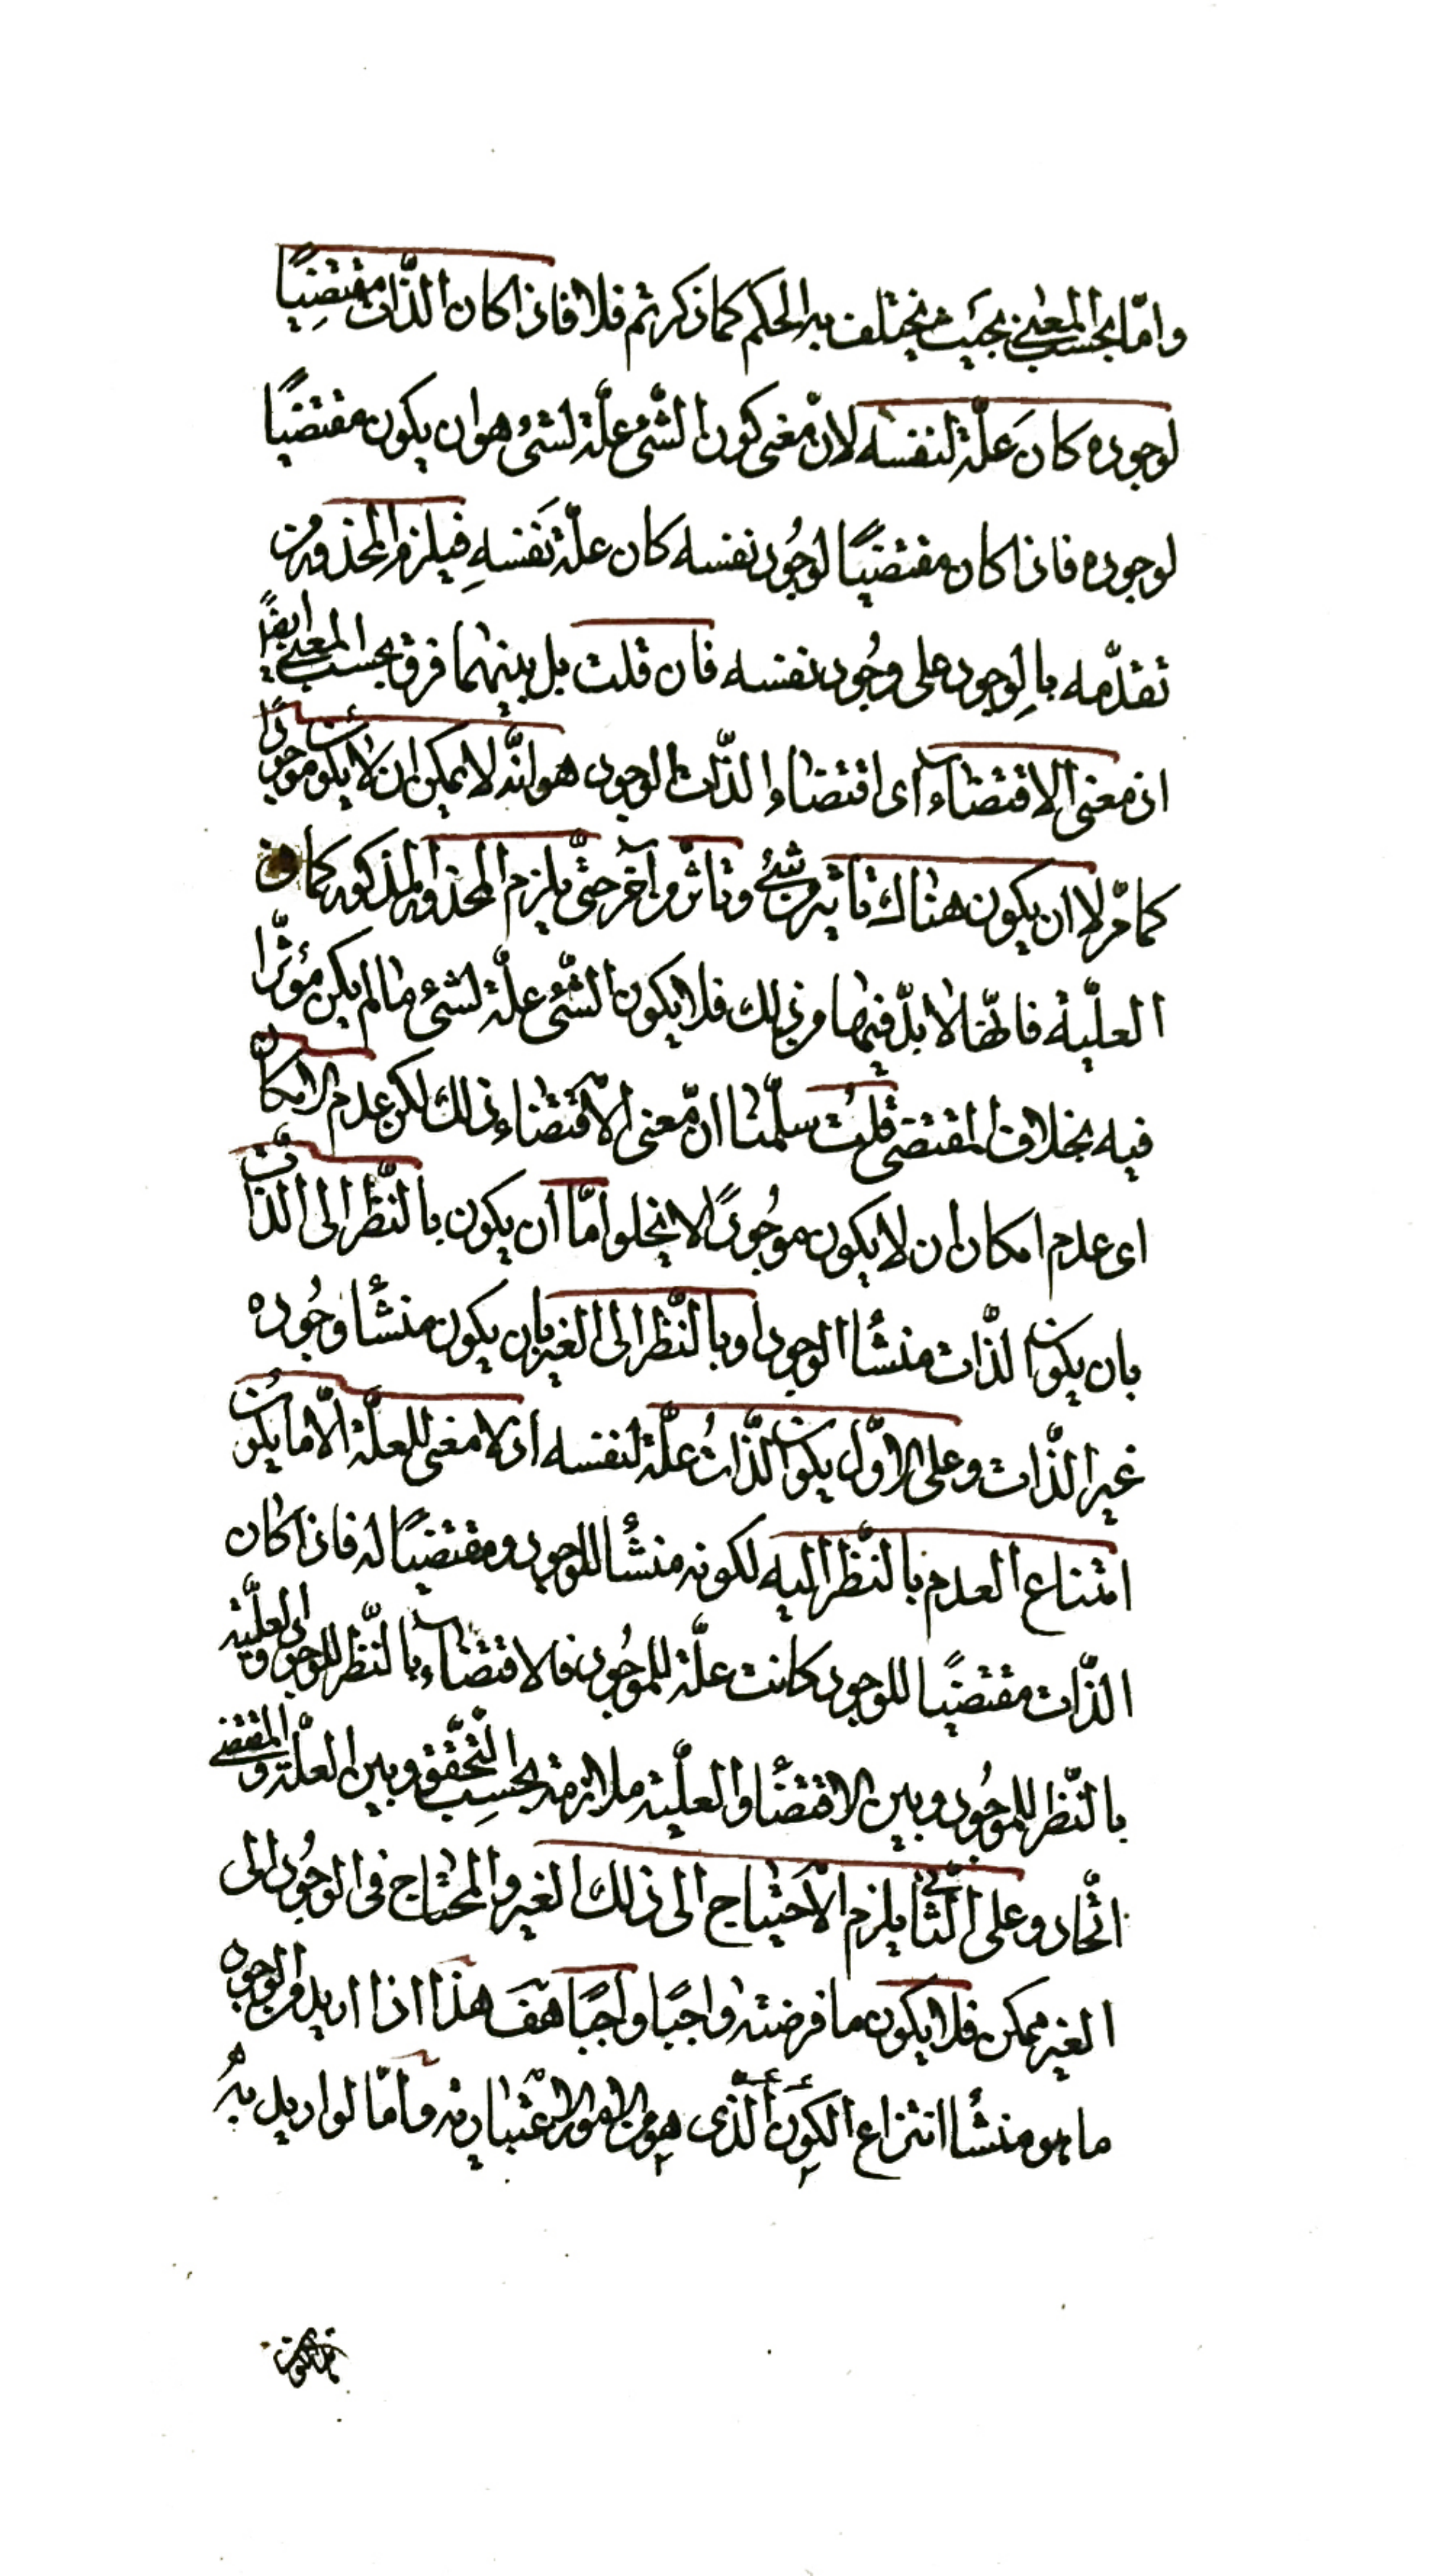 وامّا بحسب المعنى بحيث يختلف به الحكم كما ذكرتم فلا فاذا كان الذّات مقتضِيًا
لوجوده كانَ علّة لنفسه لانّ معنى كون الشّئ علّة لشئ هو ان يكون مقتضيًا
لوجوده فاذا كان مقتضيًا لوجُود نفسه كان علّة نَفسهِ فيلزم المحذور من
تقدّمه بالوجود على وجُود نفسه فان قلت بل بينهما فرق بحسب المعنى ايضًا
اذ معنى الاقتضاء اى اقتضاء الذّات الوجود هو انّه لا يمكن ان لا يكون موجودًا
كما مرّ لا ان يكون هناك تاثير من شئ وتاثّر من آخر حتّى يلزم المحذور المذكور كما فى
العلّية فانّها لا بدّ فيها من ذلك فلا يكون الشّئ علّة لشئ ما لم يكن مؤثّرا
فيه بخلاف المقتضى قلتُ سلّمنا انّ معنى الاقتضاء ذلك لكن عدم الامكان
اى عدم امكان ان لا يكون موجُودًا لا يخلوا امّا ان يكون بالنّظر الى الذّات
بان يكون الذّات منشأ الوجود او بالنّظر الى الغير بان يكون منشأ وجُوده
غير الذّات وعلى الاوّل يكون الذّاتُ علّة لنفسه اذ لا معنى للعلّة الّا ما يكون
امتناع العدم بالنّظر اليه لكونه منشأ للوجود ومقتضيًا له فاذا كان
الذّات مقتضيًا للوجود كانت علّة للموجُود فالاقتضاء بالنّظر للوجود والعلّية
بالنّظر للموجُود وبين الاقتضأ والعلّية ملازمة بحسب التّحقّق وبين العلّة والمقتضى
اتّحاد وعلى الثّانى يلزم الاحتياج الى ذلك الغير والمحتاج فى الوجُود الى
الغير ممكن فلا يكون ما فرضته واجبًا واجبًا هَفَ هذا اذا اريد من الوجود
ما هو منشأ انتزاع الكون الّذى هو من الامور الاعتبارية وامّا لو اريد به